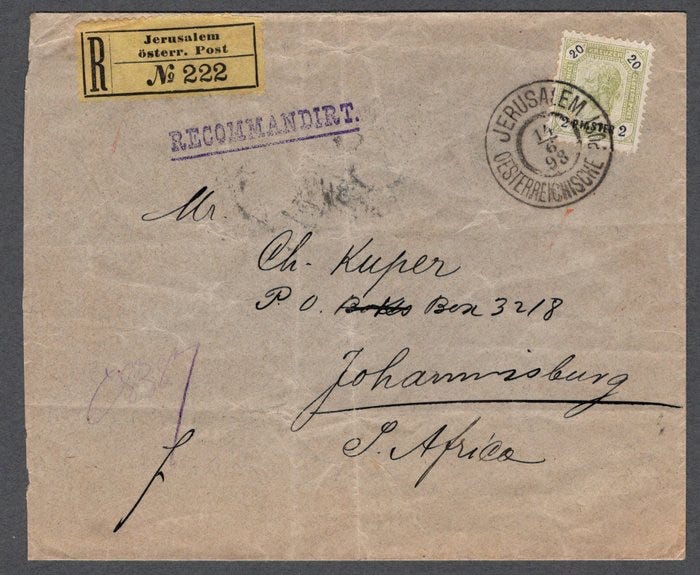 R
Jerusalem
österr. Post
№ 222
RECOMMANDIRT.
20 20
2 PIASTER 2
JERUSALEM
14
6
98
OESTERREICHISCHE
Mr.
Ch. Kuper
P O. Box 3218
Johannisburg
S. Africa